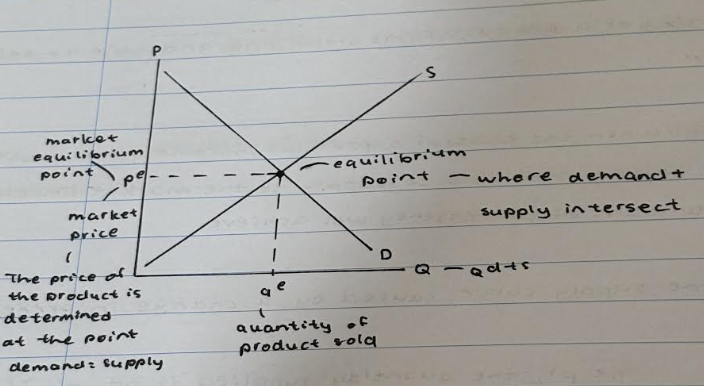 P
S
market
equilibrium
point
pe
equilibrium
point – where demand +
supply intersect
market
price
The price of
the product is
determined
at the point
demand = supply
D
Q – Qd+s
qe
quantity of
product sold